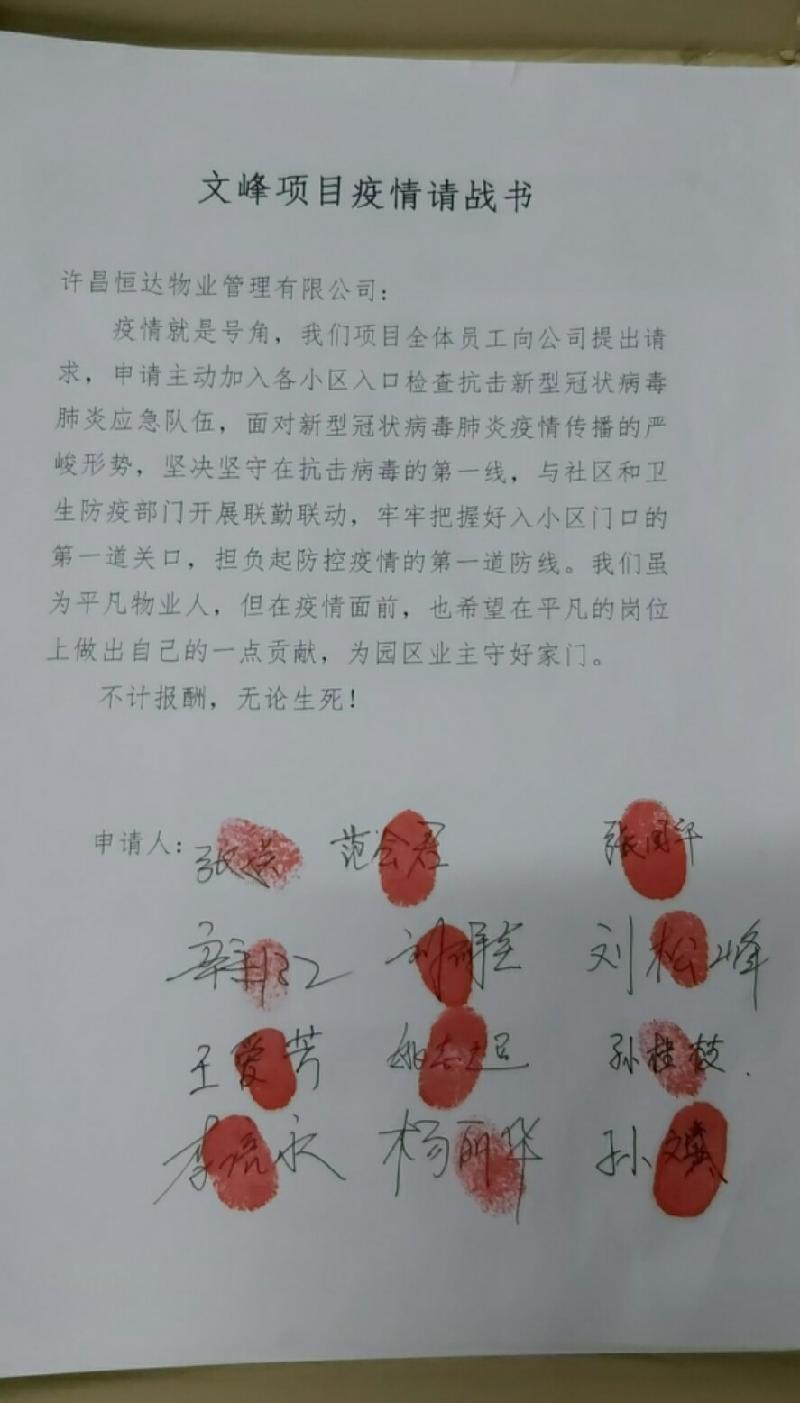 文峰项目疫情请战书
许昌恒达物业管理有限公司：
疫情就是号角，我们项目全体员工向公司提出请
求，申请主动加入各小区入口检查抗击新型冠状病毒
肺炎应急队伍，面对新型冠状病毒肺炎疫情传播的严
峻形势，坚决坚守在抗击病毒的第一线，与社区和卫
生防疫部门开展联勤联动，牢牢把握好入小区门口的
第一道关口，担负起防控疫情的第一道防线。我们虽
为平凡物业人，但在疫情面前，也希望在平凡的岗位
上做出自己的一点贡献，为园区业主守好家门。
不计报酬，无论生死！
申请人：张 范会君 张国平
刘松峰
王爱芳 孙桂枝
李 永 杨丽华 孙斌